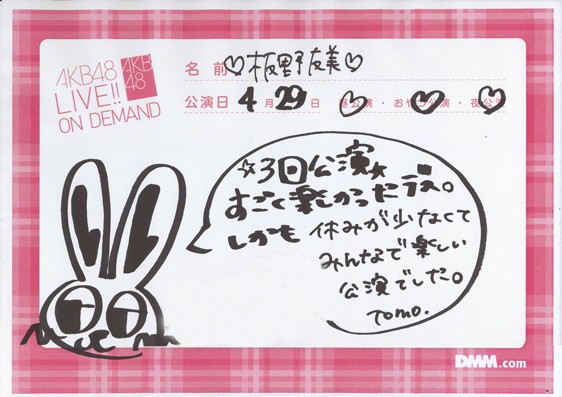 AKB48
LIVE!!
ON DEMAND
AKB
48
名前 ♡板野友美♡
公演日 4月29日 昼公演・おやつ公演・夜公演
☆3回公演☆
すごく楽しかったデス。
しかも 休みが少なくて
みんなで楽しい
公演でした。
Tomo.
DMM.com